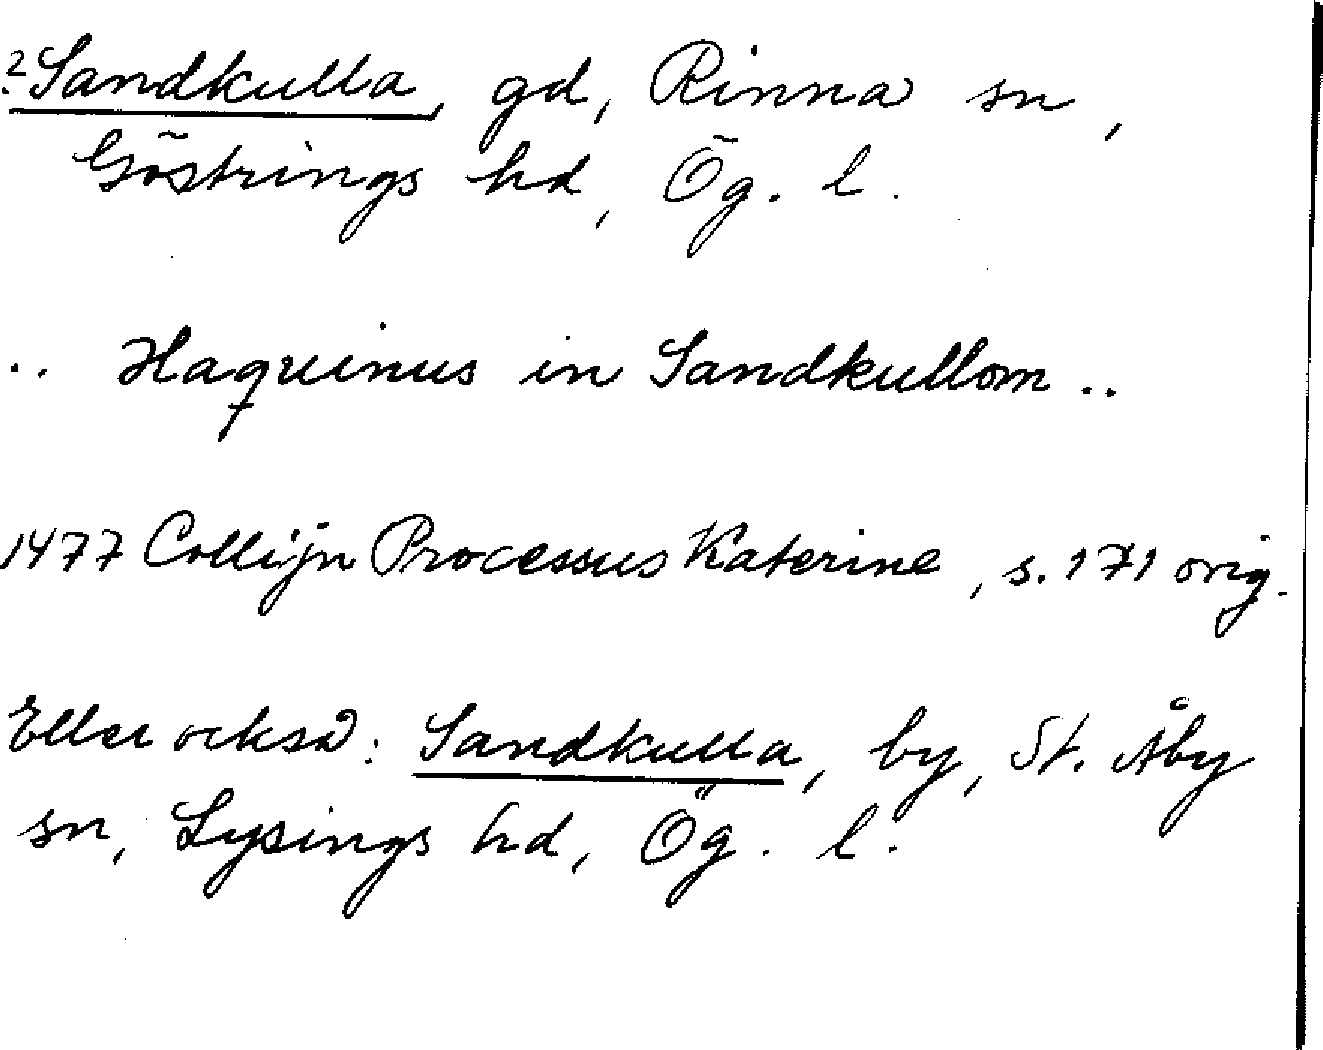 ?Sandkulla, gd, Rinna sn,
Göstrings hd, Ög. l.
.. Haquinus in Sandkullom ..
1477 Collijn Processus Katerine, s. 171 orig.
Eller också: Sandkulla, by, St. Åby
sn, Lysings hd, Ög. l.